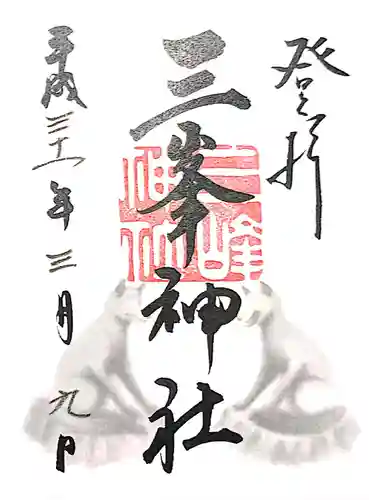 登拝
三峯神社
三峰
神社
平成三十一年三月九日